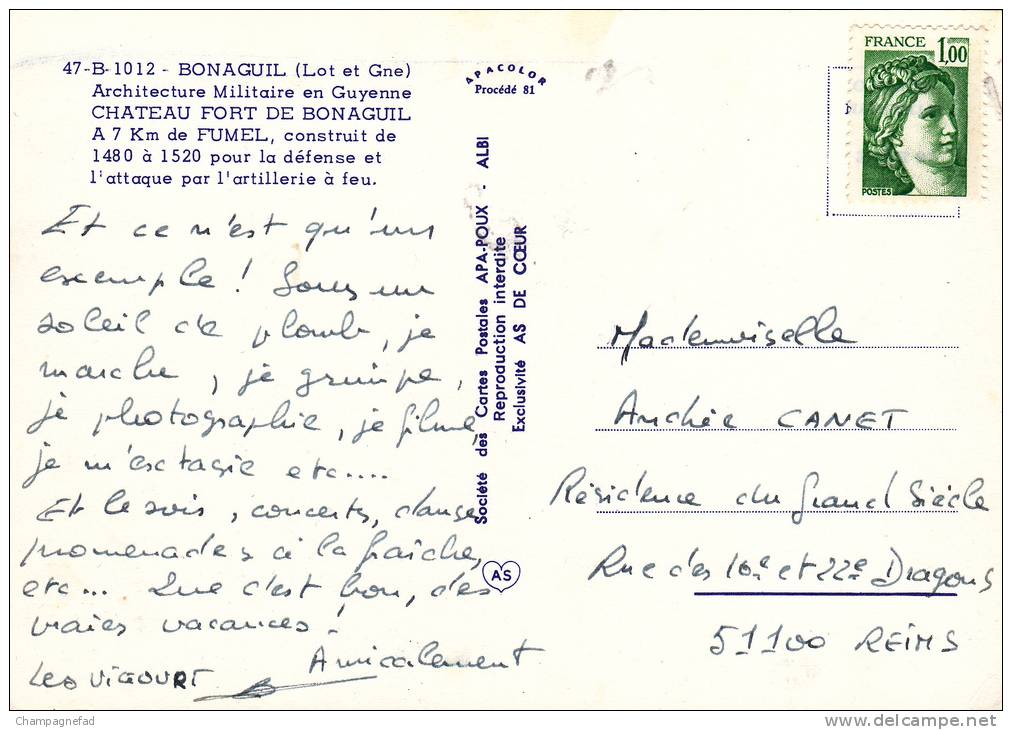 47-B-1012 - BONAGUIL (Lot et Gne)
Architecture Militaire en Guyenne
CHATEAU FORT DE BONAGUIL
A 7 Km de FUMEL, construit de
1480 à 1520 pour la défense et
l'attaque par l'artillerie à feu.
Et ce n'est qu'un
exemple ! Sous un
soleil de plomb, je
marche, je grimpe,
je photographie, je filme,
je m'extasie etc....
Et le soir, concerts, danse
promenades à la fraîche,
etc... Que c'est bon, des
vraies vacances !
Amicalement
APACOLOR
Procédé 81
Société des Cartes Postales APA-POUX - ALBI
Reproduction interdite
Exclusivité AS DE CŒUR
AS
FRANCE
1,00
POSTES
Mademoiselle
Andrée CANET
Résidence du Grand Siècle
Rue des 16e et 22e Dragons
51100 REIMS
Champagnefad
delcampe.net